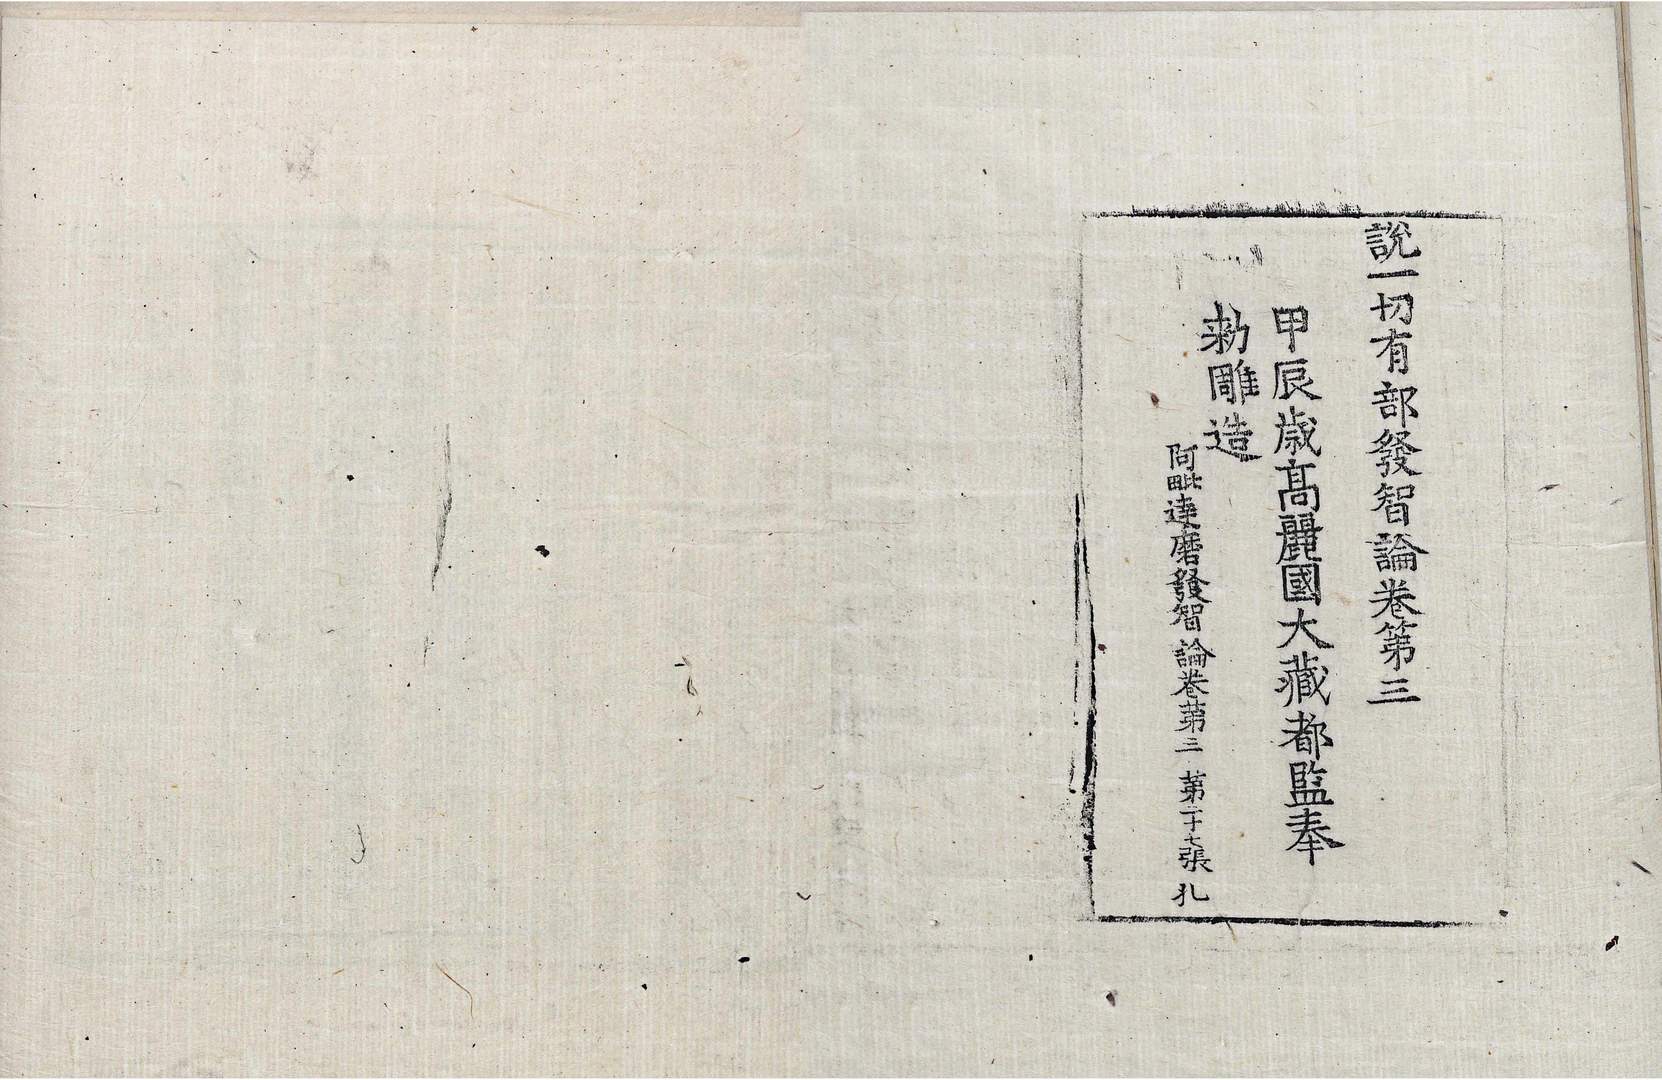 說一切有部發智論卷第三
甲辰歳髙麗國大藏都監奉
勑雕造
阿毗達磨發智論卷苐三 苐二十七張 孔